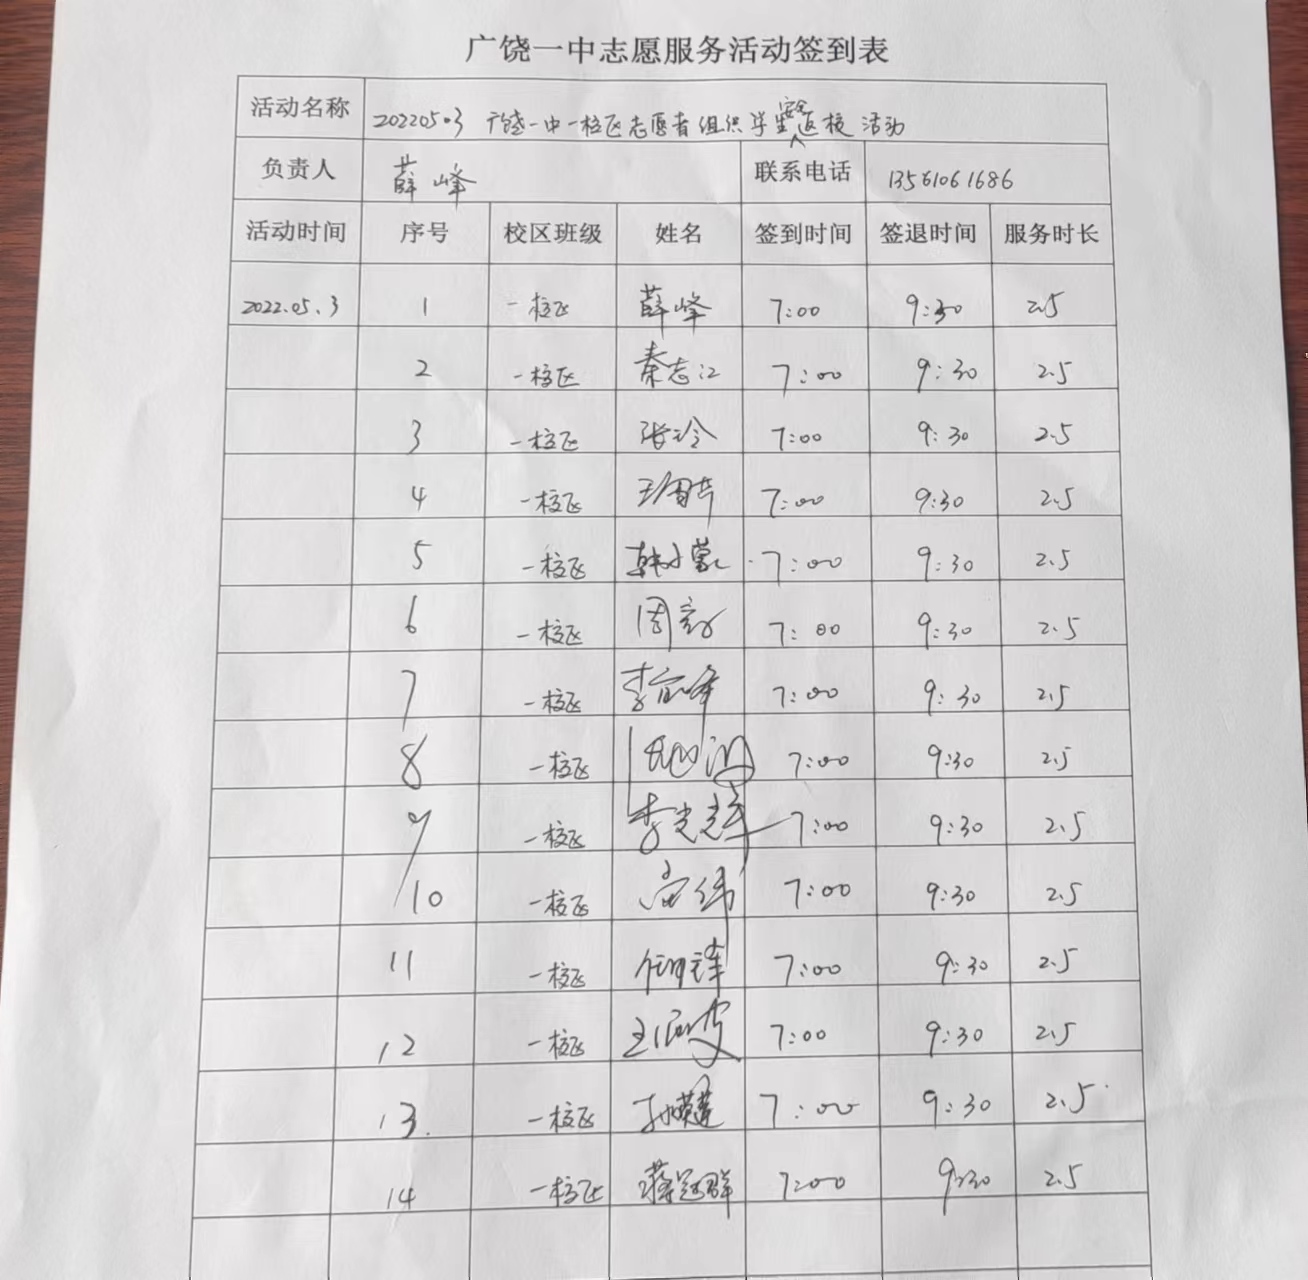 广饶一中志愿服务活动签到表
活动名称 2022.05.3 广饶一中一校区志愿者组织学生安全返校活动
负责人 薛峰 联系电话 13561061686
活动时间 序号 校区班级 姓名 签到时间 签退时间 服务时长
2022.05.3 1 一校区 薛峰 7:00 9:30 2.5
2 一校区 秦志江 7:00 9:30 2.5
3 一校区 张玲 7:00 9:30 2.5
4 一校区 7:00 9:30 2.5
5 一校区 韩小蒙 7:00 9:30 2.5
6 一校区 周 7:00 9:30 2.5
7 一校区 李 7:00 9:30 2.5
8 一校区 7:00 9:30 2.5
9 一校区 李光辉 7:00 9:30 2.5
10 一校区 7:00 9:30 2.5
11 一校区 7:00 9:30 2.5
12 一校区 王 7:00 9:30 2.5
13. 一校区 7:00 9:30 2.5
14 一校区 蒋冠群 7:00 9:30 2.5